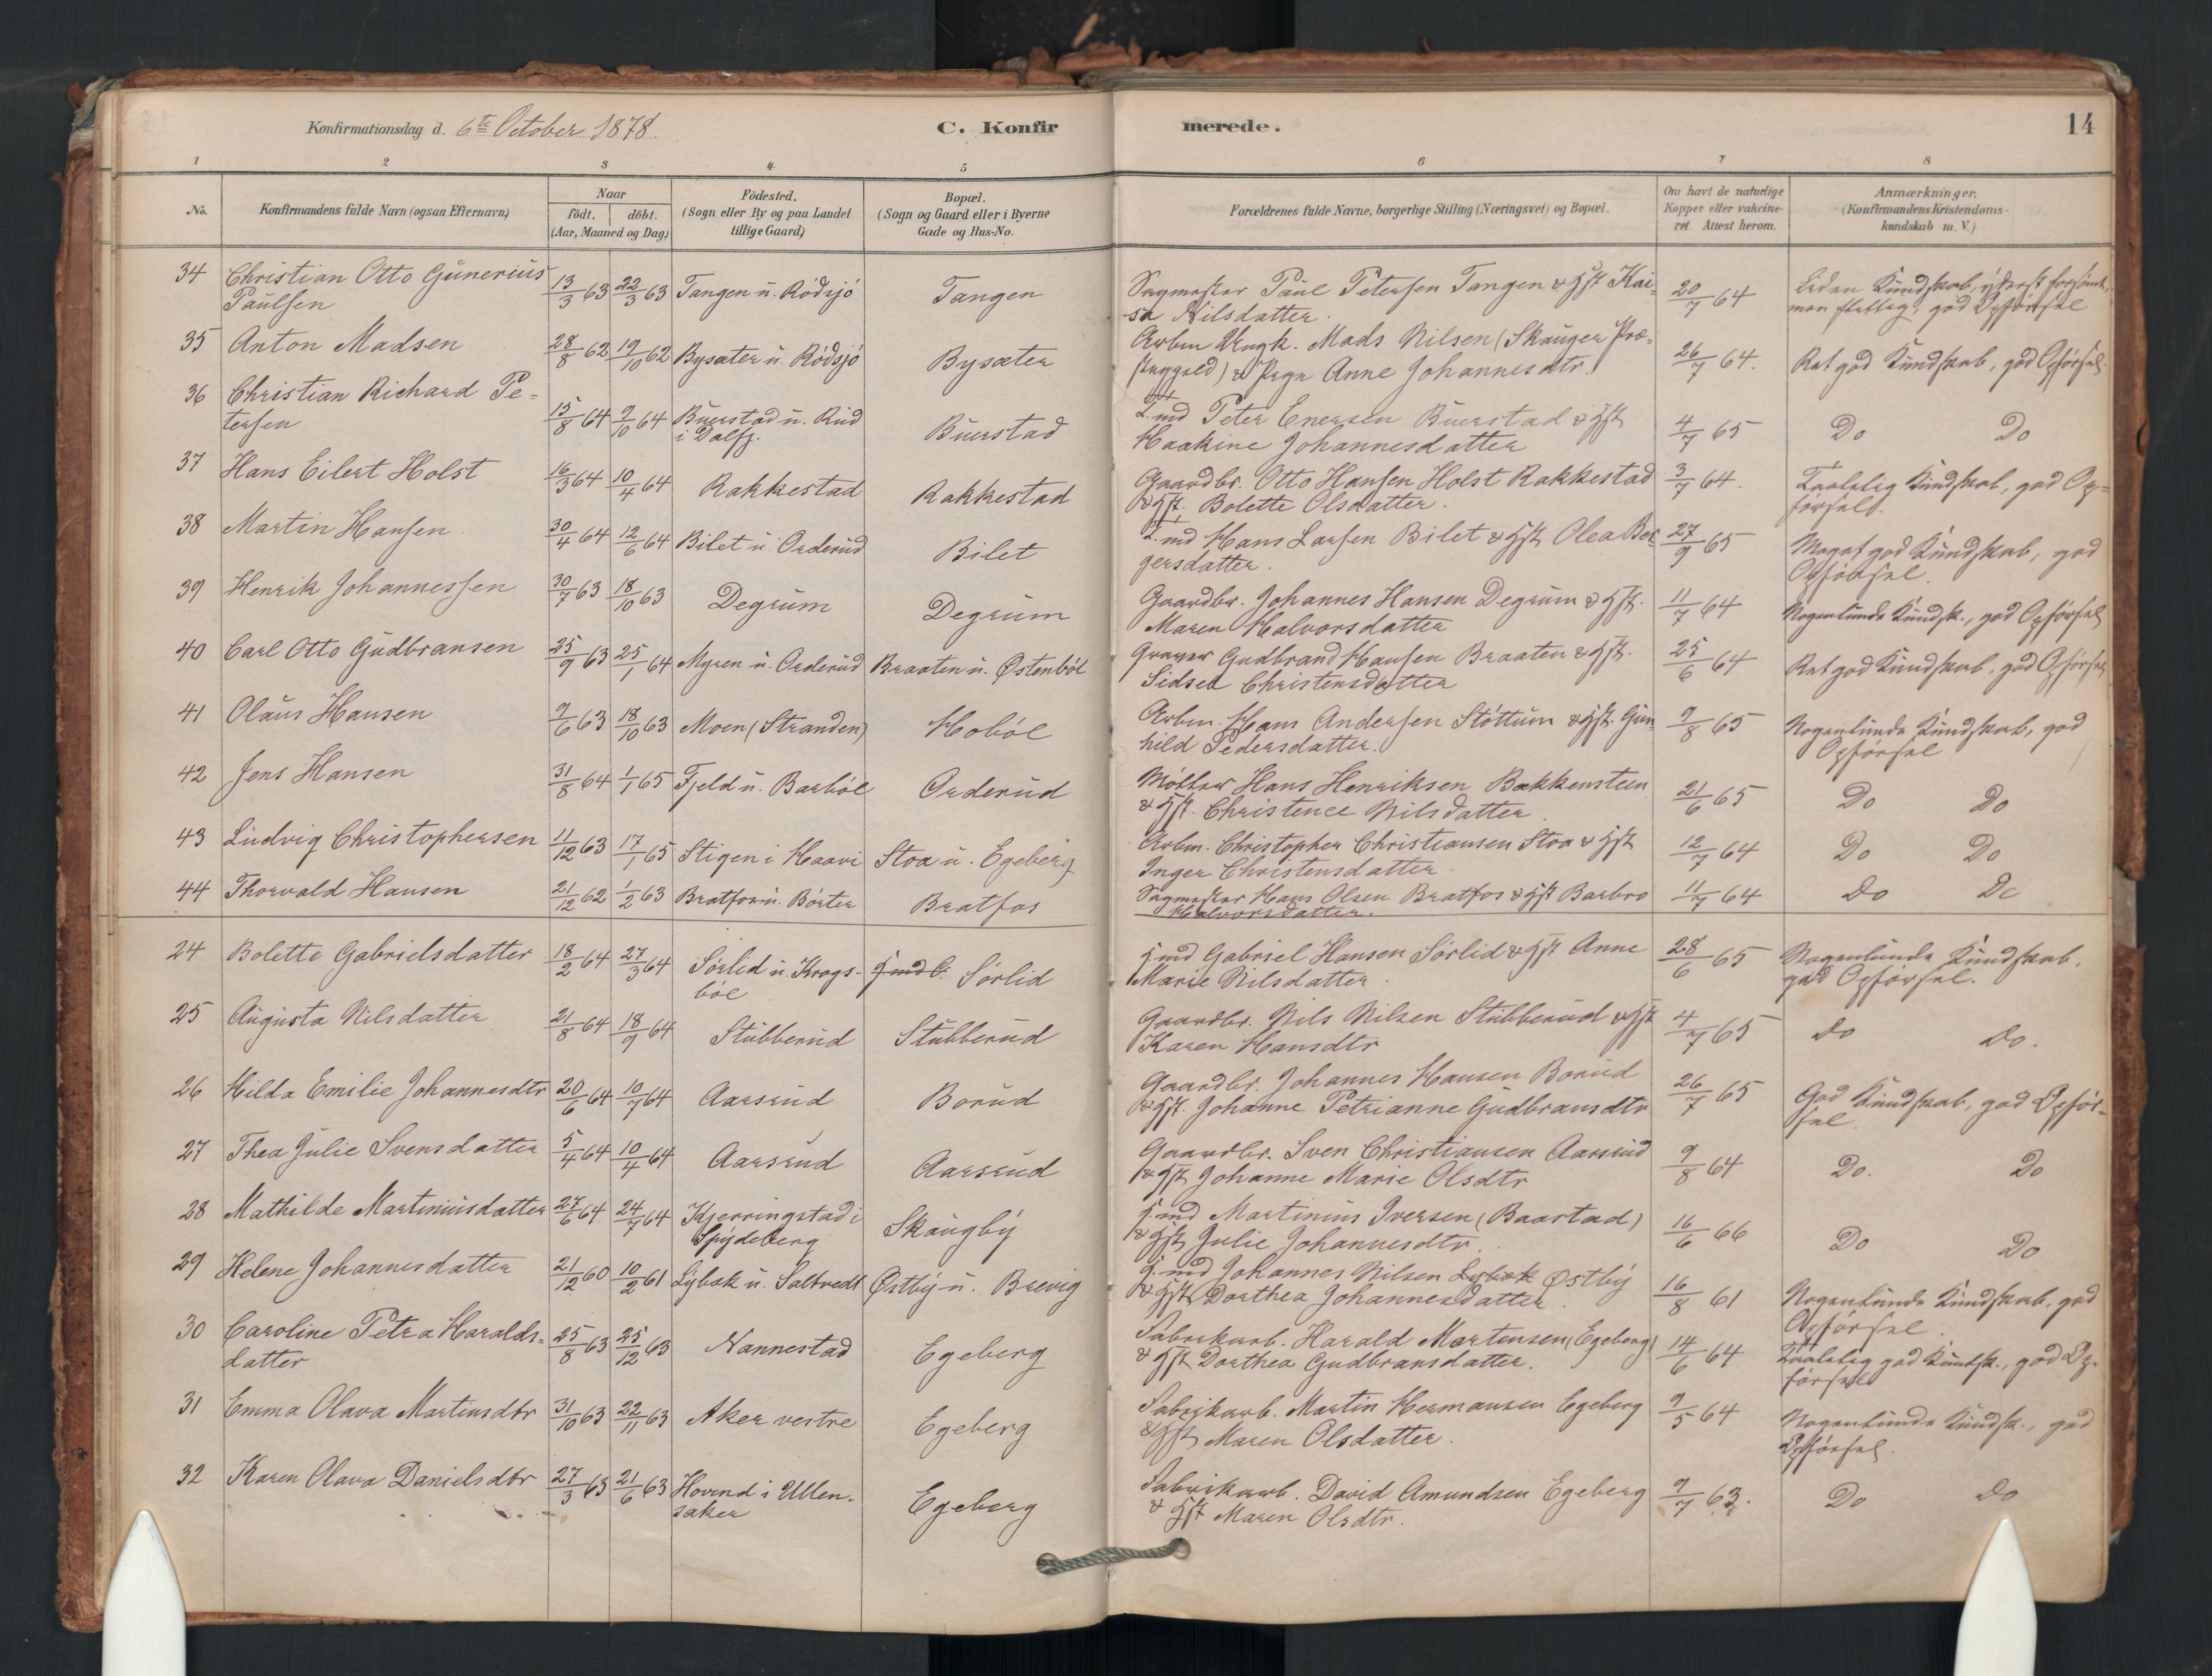 Konfirmationsdag d. 6te October 1878. C. Konfirmerede. 14
1 2 3 4 5 6 7 8
No. Konfirmandens fulde Navn (ogsaa Efternavn) Naar födt. döbt. (Aar, Maaned og Dag) Födested. (Sogn eller By og paa Landet tillige Gaard) Bopæl. (Sogn og Gaard eller i Byerne Gade og Hus-No. Forældrenes fulde Navne, borgerlige Stilling (Næringsvei) og Bopæl. Om havt de naturlige Kopper eller vakcineret. Attest herom. Anmærkninger. (Konfirmandens Kristendomskundskab m.V.)
34 Christian Otto Gunerius 13/3 63 22/3 63 Tangen u. Rödsjö Tangen Sagmester Paul Petersen Tangen & Hst Kai- 20/7 64 Liden Kundskab, yderst forsömt,
Paulsen sa Nilsdatter. men flittig, god Opförsel
35 Anton Madsen 28/8 62 19/10 62 Bysæter u. Rödsjö Bysæter Arbm Ungk. Mads Nilsen (Skauger Præ- 26/7 64. Ret god Kundskab, god Opförsel
stegjeld) & Pige Anne Johannesdtr.
36 Christian Richard Pe- 15/8 64 9/10 64 Buerstad u. Rud Buerstad Peter Enersen Buerstad & Hst 4/7 65 Do Do
tersen i Haakine Johannesdatter
37 Hans Eilert Holst 16/3 64 10/4 64 Rakkestad Rakkestad Gaardbr. Otto Hansen Holst Rakkestad 3/7 64. Taalelig Kundskab, god Op-
& Hst. Bolette Olsdatter. försel.
38 Martin Hansen 30/4 64 12/6 64 Bilet u. Orderud Bilet Hans Larsen Bilet & Hst Olea Ber- 27/9 65 Meget god Kundskab, god
gersdatter. Opförsel.
39 Henrik Johannessen 30/7 63 18/10 63 Degrum Degrum Gaardbr. Johannes Hansen Degrum & Hst. 11/7 64 Nogenlunde Kundsk., god Opförsel
Maren Halvorsdatter
40 Carl Otto Gudbransen 25/9 63 25/1 64 Myren u. Orderud Braaten u. Østenböl Gudbrand Hansen Braaten & Hst. 25/6 64 Ret god Kundskab, god Opförsel
Sidsel Christensdatter
41 Olaus Hansen 9/6 63 18/10 63 Moen (Stranden) Hoböl Arbm. Hans Andersen Stöttum & Hst. Gun 9/8 65 Nogenlunde Kundskab, god
hild Pedersdatter. Opförsel
42 Jens Hansen 31/8 64 1/1 65 Fjeld u. Barböl Orderud Möller Hans Henriksen Bakkensteen 21/6 65 Do Do
& Hst. Christence Nilsdatter
43 Ludvig Christophersen 11/12 63 17/1 65 Stigen i Haavi Stoa u. Egeberg Arbm. Christopher Christiansen Stoa & Hst 12/7 64 Do Do
Inger Christensdatter
44 Thorvald Hansen 21/12 62 1/2 63 Bratfos u. Börter Bratfos Sagmester Hans Olsen Bratfos & Hst Barbro 11/7 64 Do Do
Halvorsdatter.
24 Bolette Gabrielsdatter 18/2 64 27/3 64 Sörlid u. Krogs- Sörlid Gabriel Hansen Sörlid & Hst Anne 28/6 65 Nogenlunde Kundskab,
böl Marie Nilsdatter. god Opförsel.
25 Augusta Nilsdatter 21/8 64 18/9 64 Stubberud Stubberud Gaardbr. Nils Nilsen Stubberud & Hst 4/7 65 Do Do.
Karen Hansdtr
26 Hilda Emilie Johannesdtr 20/6 64 10/7 64 Aarsrud Borud Gaardbr. Johannes Hansen Borud 26/7 65 God Kundskab, god Opför-
& Hst. Johanne Petrianne Gudbransdtr sel.
27 Thea Julie Svensdatter 5/4 64 10/4 64 Aarsrud Aarsrud Gaardbr. Sven Christiansen Aarsrud 9/8 64 Do. Do
& Hst Johanne Marie Olsdtr
28 Mathilde Martiniusdatter 27/6 64 24/7 64 Kjerringstad i Skaugby Martinius Iversen (Baastad) 16/6 66 Do Do
Spydeberg & Hst Julie Johannesdtr.
29 Helene Johannesdatter 21/12 60 10/2 61 Lybæk u. Saltvedt Østby u. Brevig Johannes Nilsen Lybæk Østby 16/8 61 Nogenlunde Kundskab, god
& Hst Dorthea Johannesdatter. Opförsel.
30 Caroline Petra Haralds- 25/8 63 25/12 63 Nannestad Egeberg Fabrikarb. Harald Martensen (Egeberg) 14/6 64 Taalelig god Kundsk., god Op-
datter & Hst Dorthea Gudbransdatter. försel
31 Emma Olava Martinsdtr 31/10 63 22/11 63 Aker vestre Egeberg Fabrikarb. Martin Hermansen Egeberg 9/5 64 Nogenlunde Kundsk., god
& Hst Maren Olsdatter. Opförsel.
32 Karen Olava Danielsdtr 27/3 63 21/6 63 Hovind i Ullen- Egeberg Fabrikarb. David Amundsen Egeberg 9/7 63. Do Do
saker & Hst Maren Olsdtr.